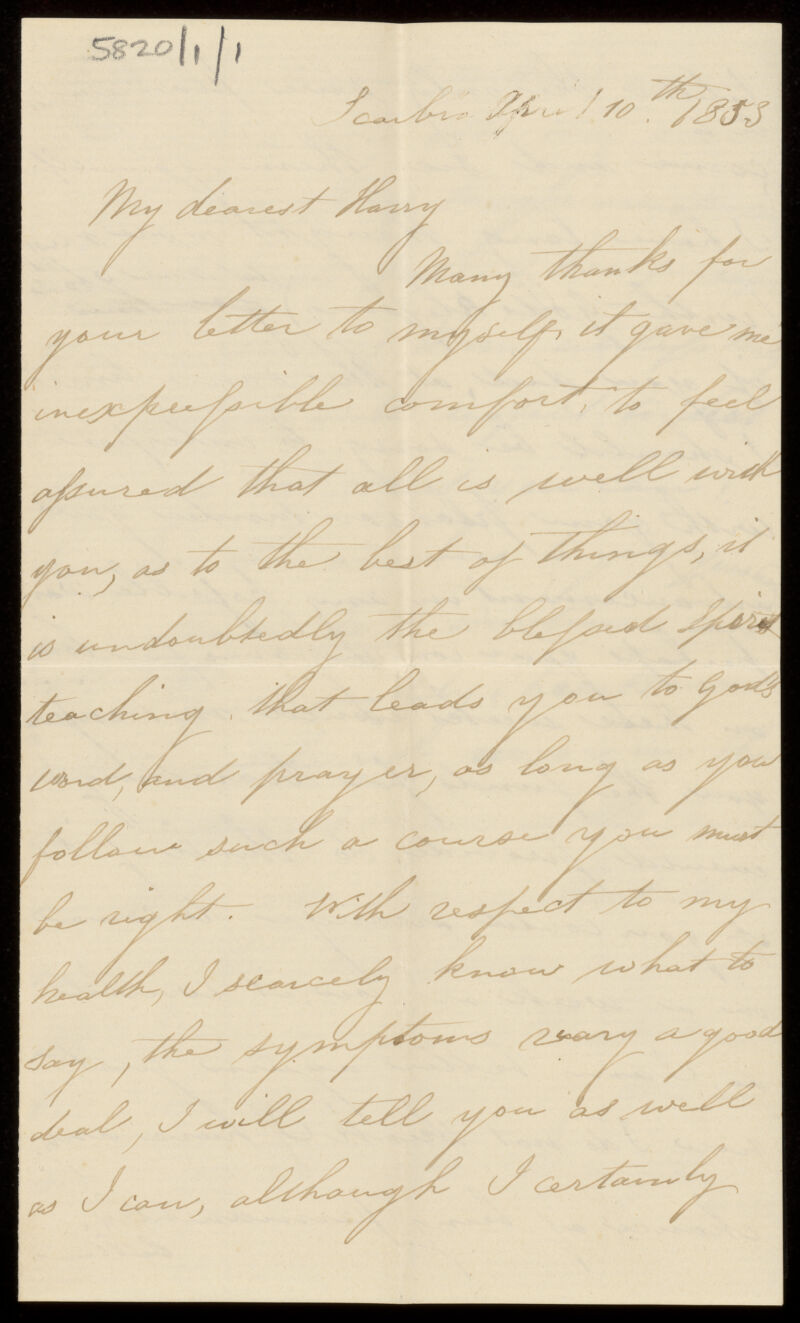 5820/1/1
Scarbro April 10.th 1853
My dearest Harry
Many thanks for
your letter to myself, it gave me
inexpressible comfort, to feel
assured that all is well with
you, as to the best of things, it
is undoubtedly the blessed Spirit
teaching that leads you to God's
word, and prayer, as long as you
follow such a course you must
be right. With respect to my
health, I scarcely know what to
say, the symptoms vary a good
deal, I will tell you as well
as I can, although I certainly